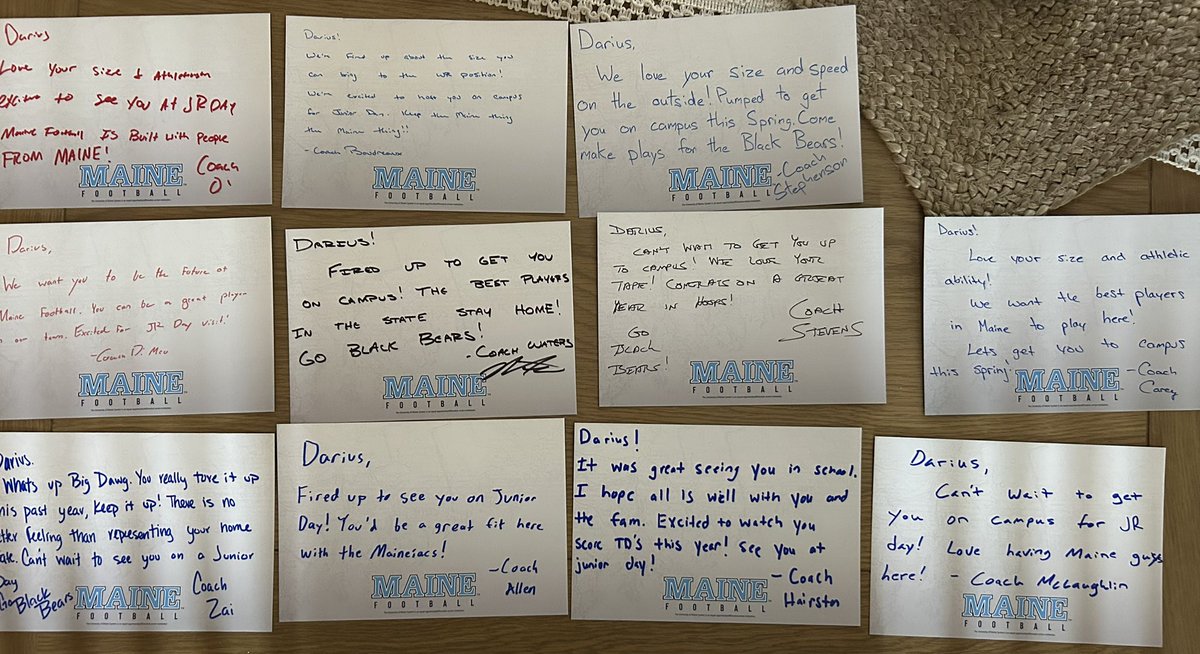 Darius
Love your size & Athleticism
excited to see you At JR DAY
Maine Football Is Built with People
FROM MAINE!
Coach
O'
MAINE
FOOTBALL
Darius!
We're fired up about the size you
can bring to the WR position!
We're excited to host you on campus
for Junior Day. Keep the Main thing
the Maine thing!!
- Coach Boudreaux
MAINE
FOOTBALL
Darius,
We love your size and speed
on the outside! Pumped to get
you on campus this Spring. Come
make plays for the Black Bears!
- Coach
Stephenson
MAINE
FOOTBALL
Darius,
We want you to be the future at
Maine Football. You can be a great player
on our team. Excited for JR Day visit!
- Coach D.
MAINE
FOOTBALL
DARIUS!
FIRED UP TO GET YOU
ON CAMPUS! THE BEST PLAYERS
IN THE STATE STAY HOME!
GO BLACK BEARS!
- COACH WATERS
MAINE
FOOTBALL
DERIUS,
CAN'T WAIT TO GET YOU UP
TO CAMPUS! WE LOVE YOUR
TAPE! CONGRATS ON A GREAT
YEAR IN HOOPS!
GO
BLACK
BEARS!
COACH
STEVENS
MAINE
FOOTBALL
Darius!
Love your size and athletic
ability!
We want the best players
in Maine to play here!
Lets get you to campus
this spring!
- Coach
Carey
MAINE
FOOTBALL
Darius.
Whats up Big Dawg. You really tore it up
his past year, keep it up! There is no
tter feeling than representing your home
ate. Can't wait to see you on a Junior
Day
Go Black
Bears
Coach
Zai
MAINE
FOOTBALL
Darius,
Fired up to see you on Junior
Day! You'd be a great fit here
with the Maineiacs!
- Coach
Allen
MAINE
FOOTBALL
Darius!
It was great seeing you in school.
I hope all is well with you and
the fam. Excited to watch you
score TD's this year! See you at
junior day!
- Coach
Hairston
MAINE
FOOTBALL
Darius,
Can't wait to get
you on campus for JR
day! Love having Maine guys
here! - Coach McLaughlin
MAINE
FOOTBALL